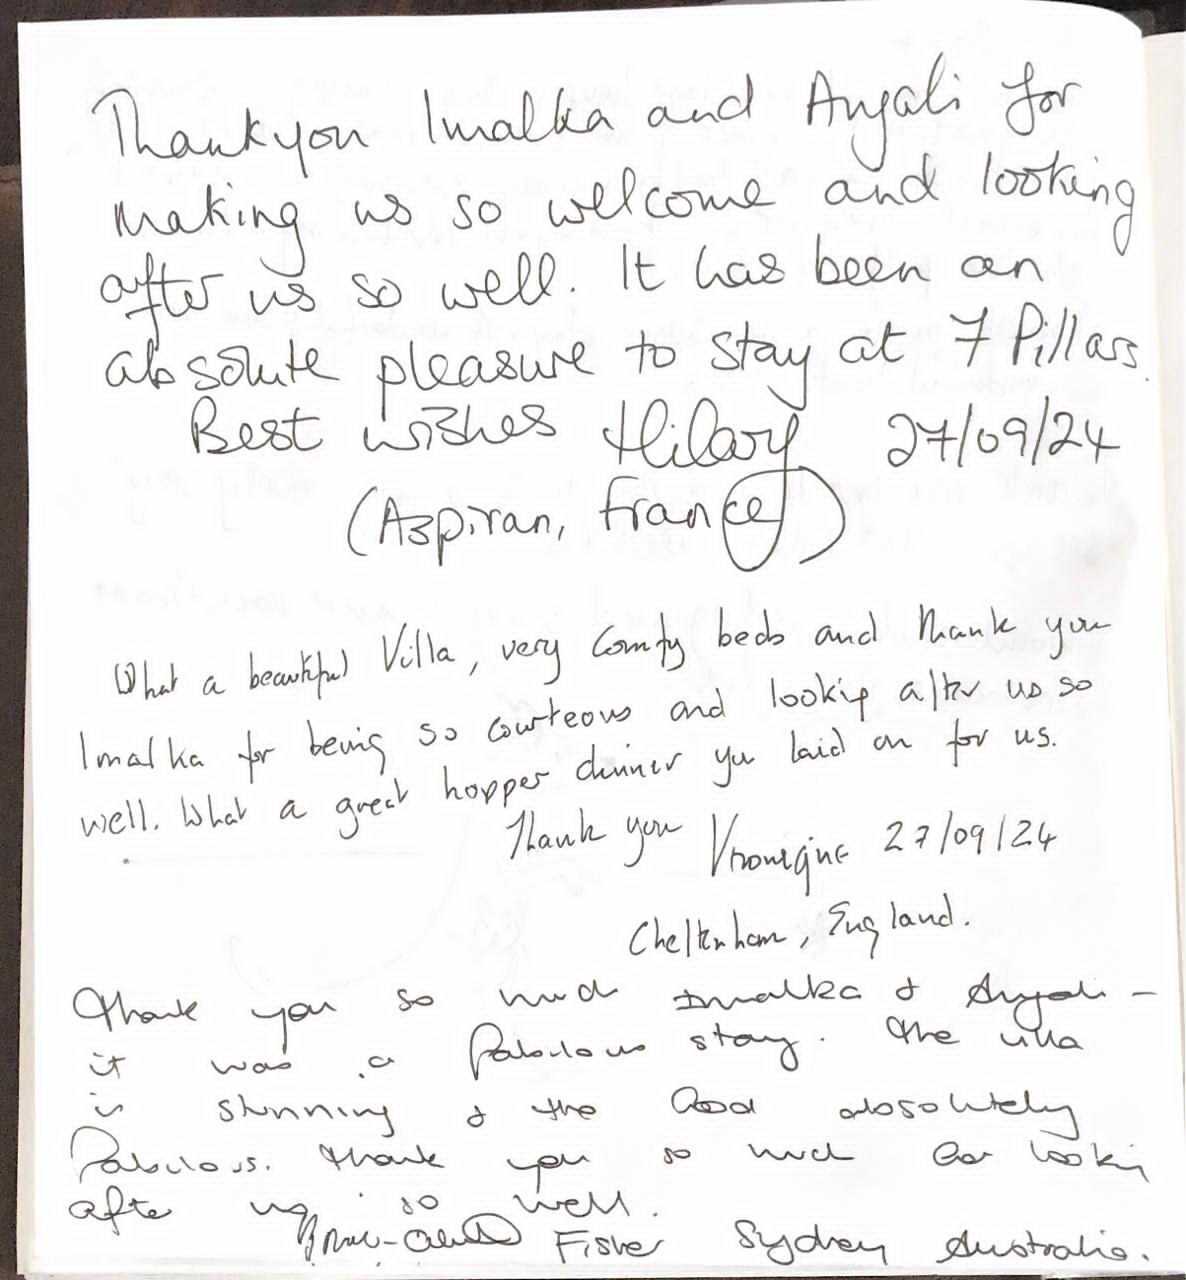 Thankyou Imalka and Anjali for
making us so welcome and looking
after us so well. It has been an
absolute pleasure to stay at 7 Pillars.
Best wishes Hilary 27/09/24
(Aspiran, France)
What a beautiful Villa, very Comfy beds and thank you
Imalka for being so courteous and looking after us so
well. What a great hopper dinner you laid on for us.
Thank you Véronique 27/09/24
Cheltenham, England.
Thank you so much Imalka & Anjali -
it was a fabulous stay. The villa
is stunning & the food absolutely
fabulous. Thank you so much for looking
after us so well.
Fisher Sydney Australia.